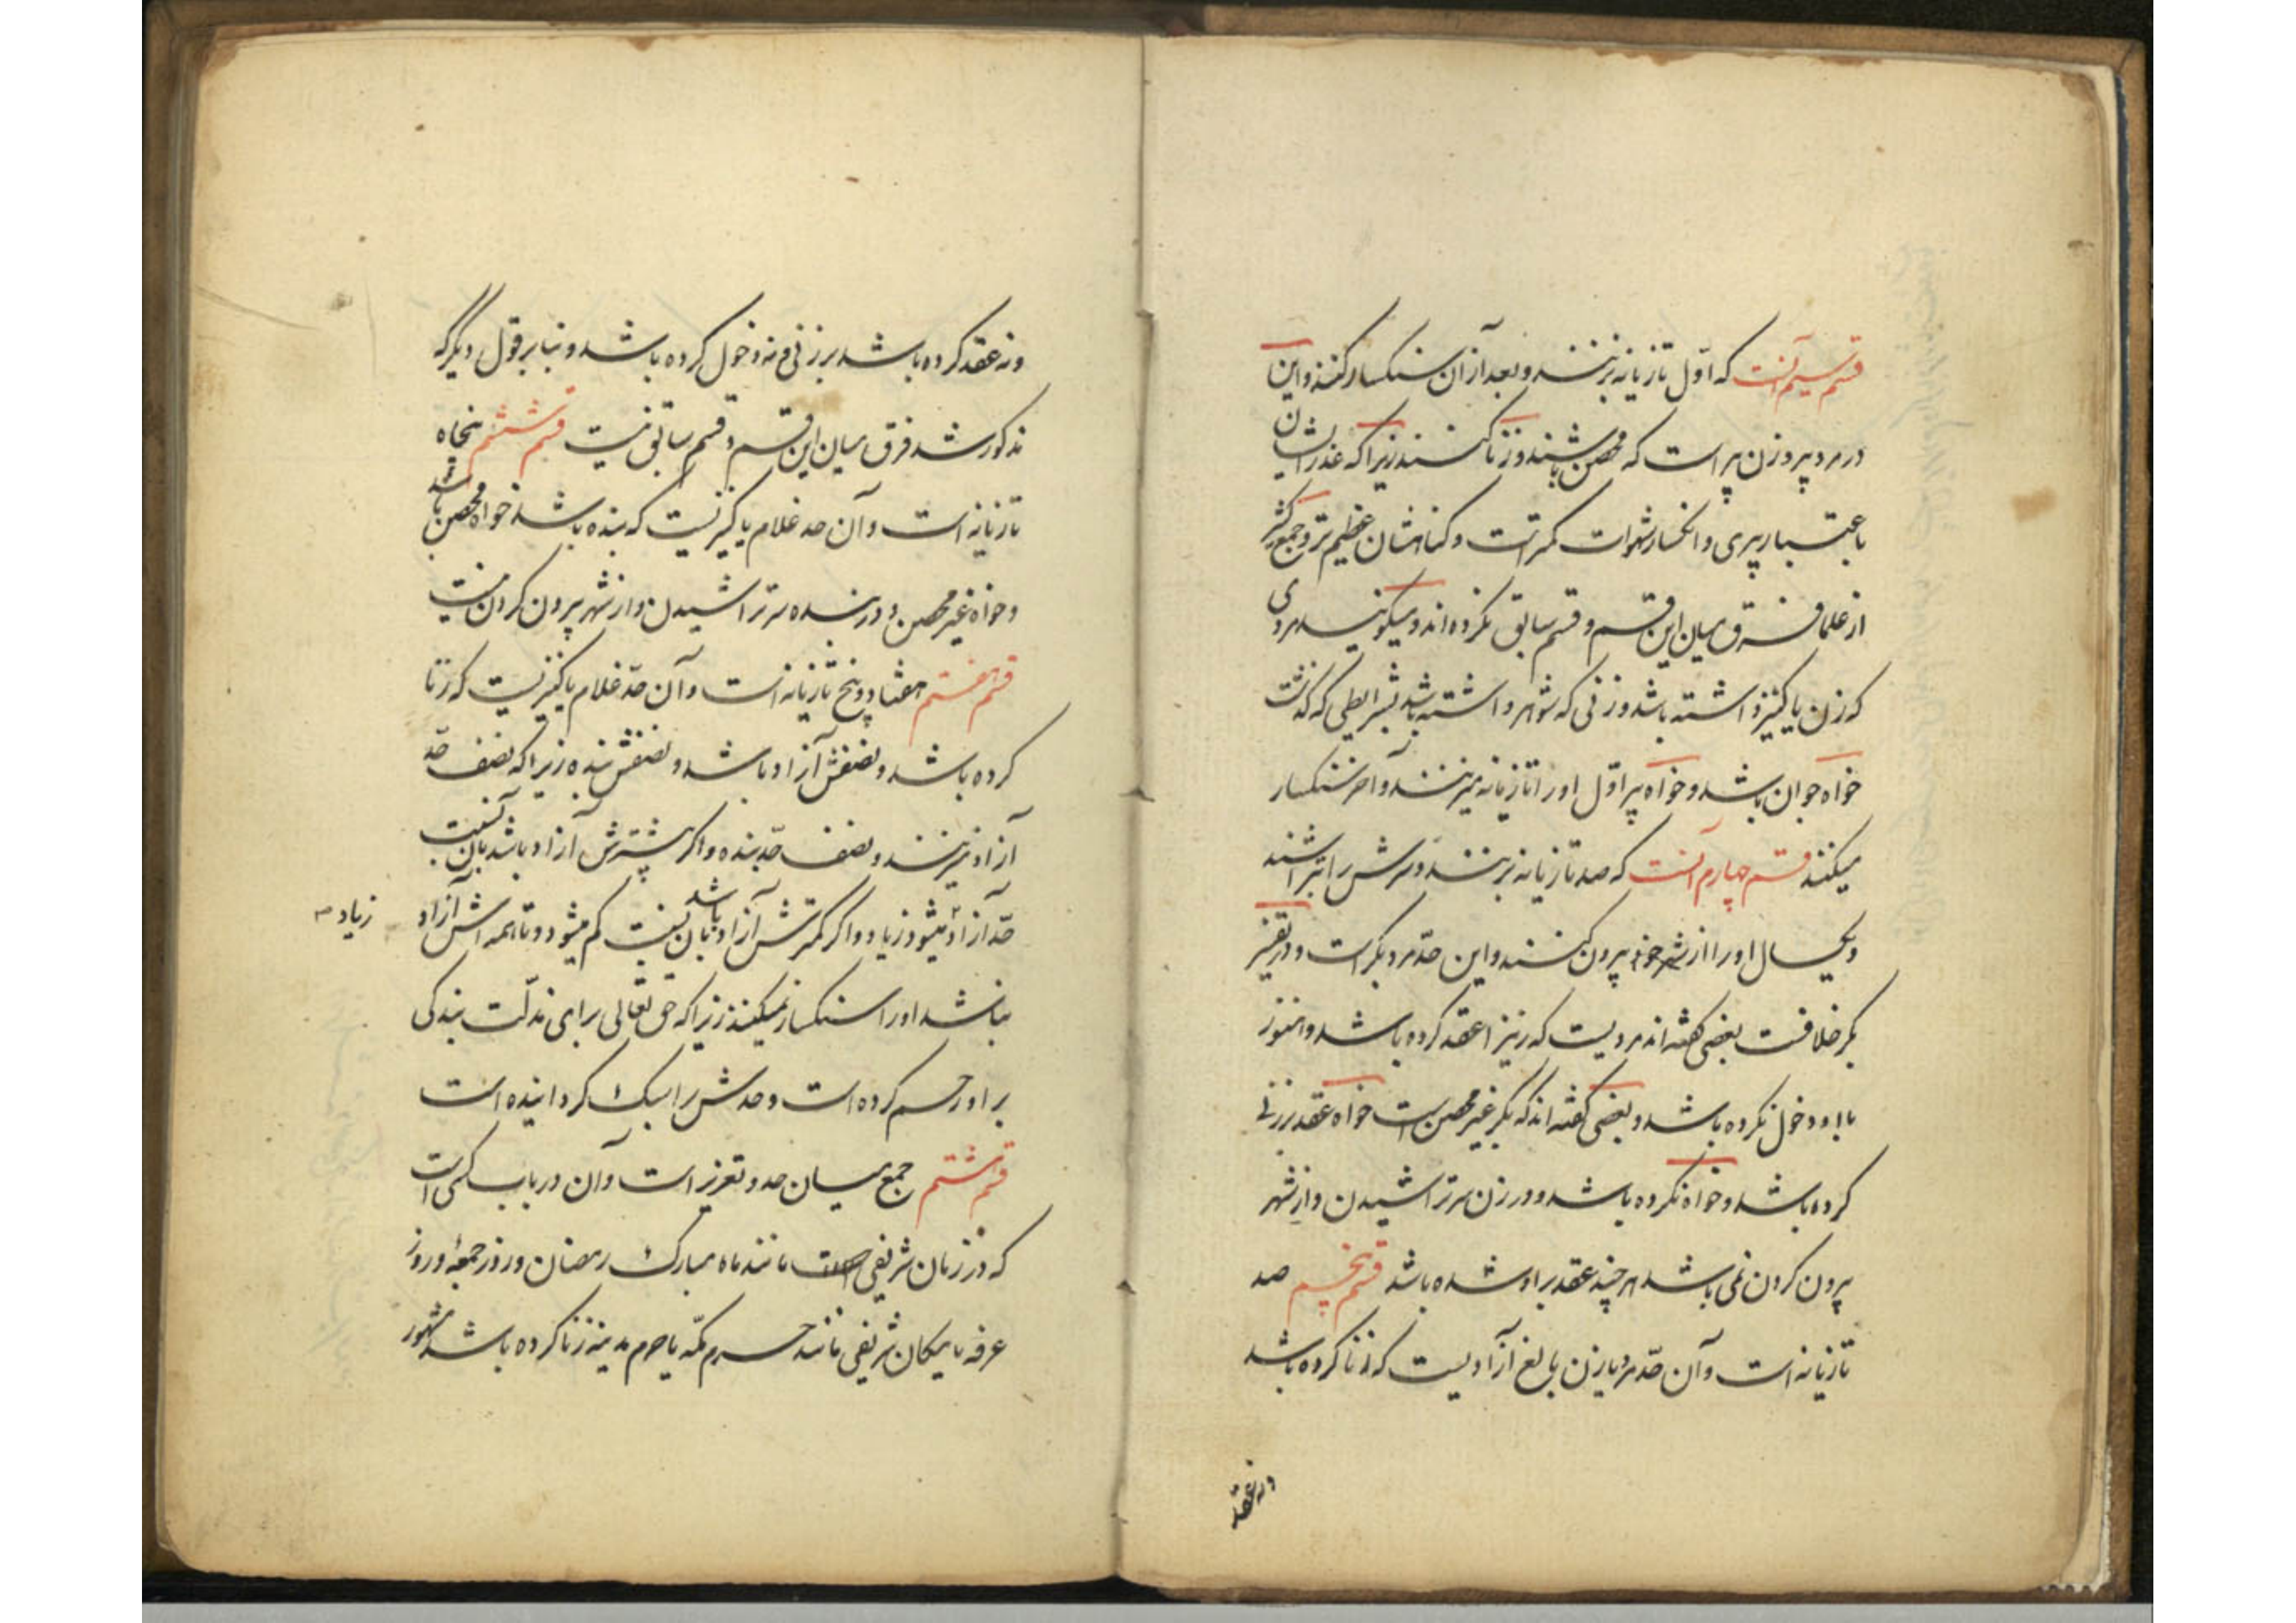 قسم سیم آنست که اوّل تازیانه بزنند و بعد از آن سنکسار کنند و این
در مرد پیر و زن پیر است که محصن باشند و زنا کنند زیرا که عذر ایشان
باعتبار پیری و انکسار شهوات کمتر است و کناهشان عظیم تر و جمع کثیر
از علما فرق میان این قسم و قسم سابق نکرده اند و میکویند مردی
که زن یا کنیز داشته باشد و زنی که شوهر داشته باشد بشرایطی که کذشت
خواه جوان باشد و خواه پیر اوّل او را تازیانه میزنند و آخر سنکسار
میکنند قسم چهارم آنست که صد تازیانه بزنند و سرش را بتراشند
و یکسال او را از شهر خود بیرون کنند و این حدّ مرد بکر است و در تفسیر
بکر خلافست بعضی کفته اند مردیست که زنیرا عقد کرده باشد و هنوز
با او دخول نکرده باشد و بعضی کفته اند که بکر غیر محصن است خواه عقد بر زنی
کرده باشد و خواه نکرده باشد و در زن سر تراشیدن و از شهر
بیرون کردن نمی باشد هر چند عقد بر او شده باشد قسم پنجم صد
تازیانه است و آن حدّ مرد یا زن بالغ آزادیست که زنا کرده باشد
و نه عقد
و نه عقد کرده باشد بر زنی و نه دخول کرده باشد و بنا بر قول دیگر که
مذکور شد فرق میان این قسم و قسم سابق نیست قسم ششم پنجاه
تازیانه است و آن حد غلام یا کنیزیست که بنده باشد خواه محصن باشد
و خواه غیر محصن و در بنده سر تراشیدن و از شهر بیرون کردن نیست
قسم هفتم هفتاد و پنج تازیانه است و آن حدّ غلام یا کنیزیست که زنا
کرده باشد و نصفش آزاد باشد و نصفش بنده زیرا که نصف حدّ
آزاد میزنند و نصف حدّ بنده و اکر بیشترش آزاد باشد بآن نسبت
حدّ آزاد میشود زیاد و اکر کمترش آزاد باشد بآن نسبت کم میشود و تا همه اش آزاد
زیاد
نباشد او را سنکسار نمیکنند زیرا که حق تعالی برای مذلّت بندکی
بر او رحم کرده است و حدش را سبک کردانیده است
قسم هشتم جمع میان حد و تعزیر است و آن در باب کسی است
که در زمان شریفی مانند ماه مبارک رمضان و روز جمعهٔ و روز
عرفه یا مکان شریفی مانند حرم مکّه یا حرم مدینه زنا کرده باشد مشهور